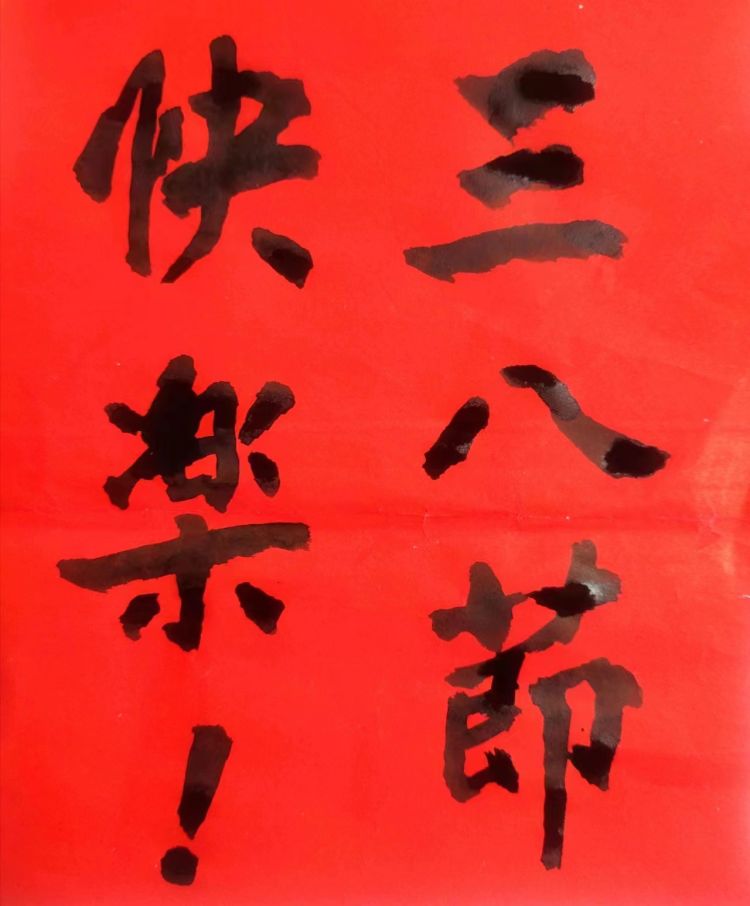 三八節
快樂！